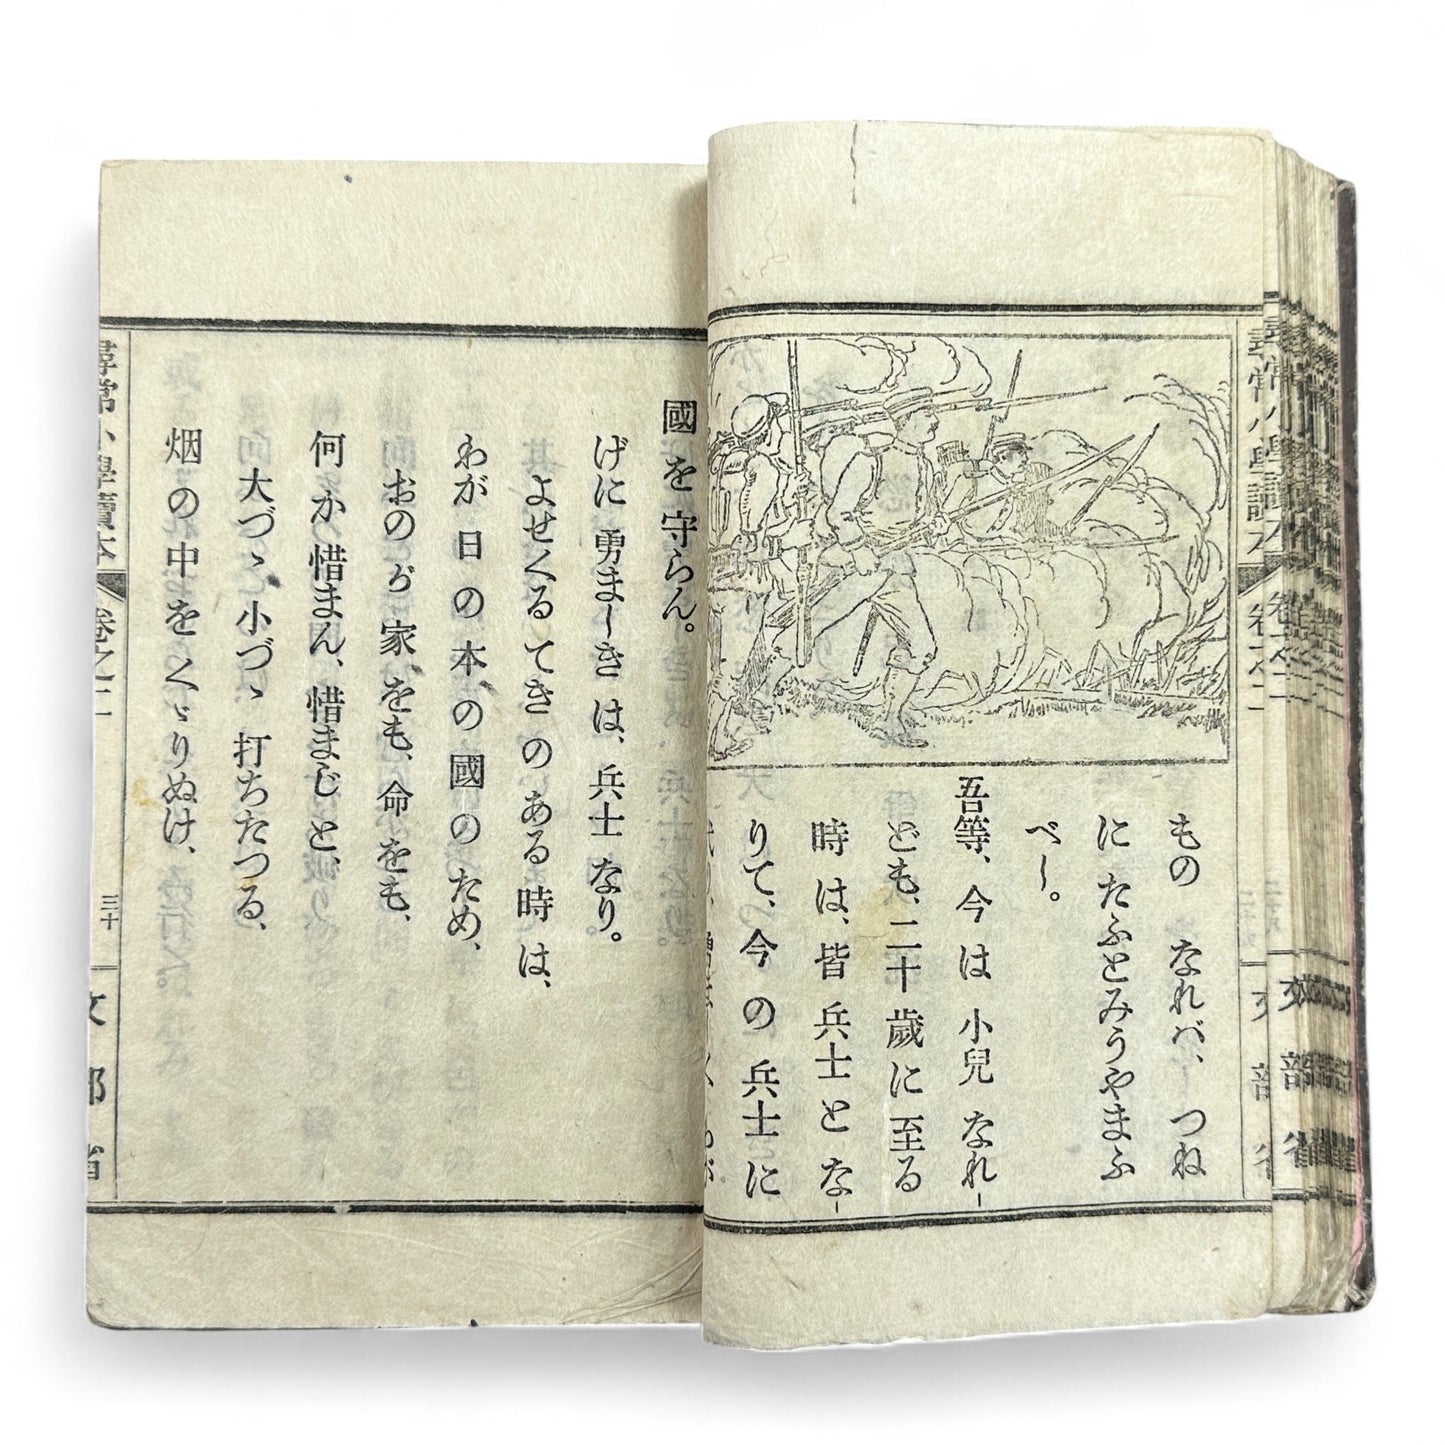 尋常小學讀本
卷之二
もの なれバ、つね
に たふとみうやまふ
べし。
吾等、今 は 小兒 なれ
ども、二十歲に至る
時 は、皆 兵士と な
りて、今 の 兵士に
國を守らん。
げに 勇ましき は、兵士 なり。
よせくる てき の ある 時 は、
わが 日 の 本の國のため、
おのが家をも、命をも、
何か惜まん、惜まじと、
大づゝ小づゝ 打ちたつる、
烟の中をくゞりぬけ、
尋常小學讀本
卷之二
三十
文部省